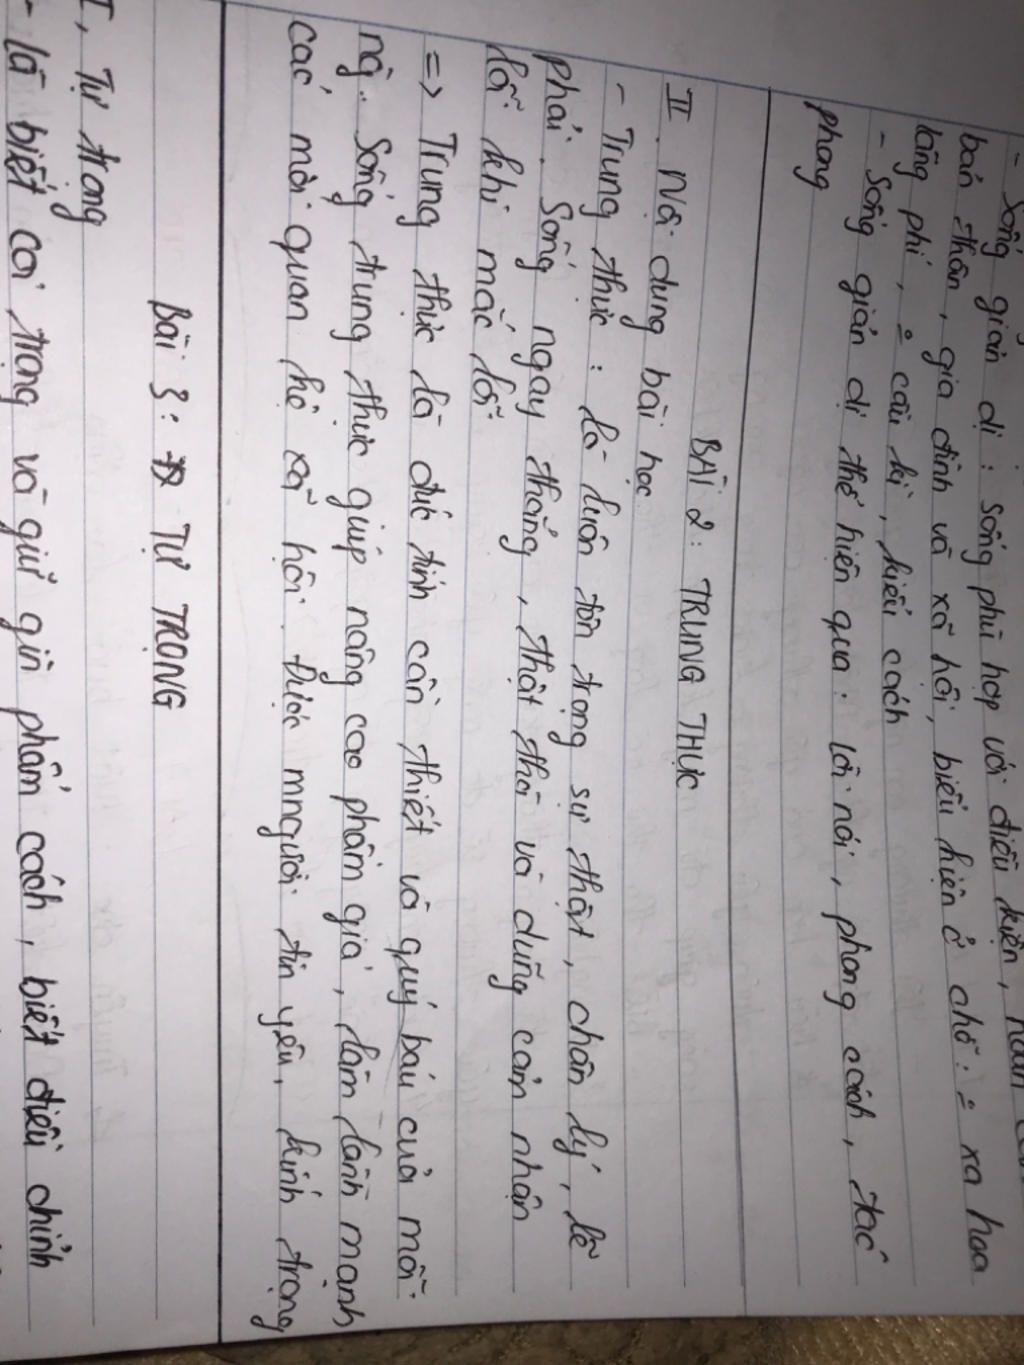 - Sống giản dị : sống phù hợp với điều kiện,
bản thân, gia đình và xã hội, biểu hiện ở chỗ : ko xa hoa
lãng phí, ko cầu kì, kiểu cách
- Sống giản dị thể hiện qua : lời nói, phong cách, tác
phong
BÀI 2 : TRUNG THỰC
II. Nội dung bài học
- Trung thực : là luôn tôn trọng sự thật, chân lý, lẽ
phải. Sống ngay thẳng, thật thà và dũng cảm nhận
lỗi khi mắc lỗi
=> Trung thực là đức tính cần thiết và quý báu của mỗi
ng. Sống trung thực giúp nâng cao phẩm giá, làm lành mạnh
các mối quan hệ xã hội. Được mngười tin yêu, kính trọng
Bài 3 : TỰ TRỌNG
I, Tự trọng
- là biết coi trọng và giữ gìn phẩm cách, biết điều chỉnh